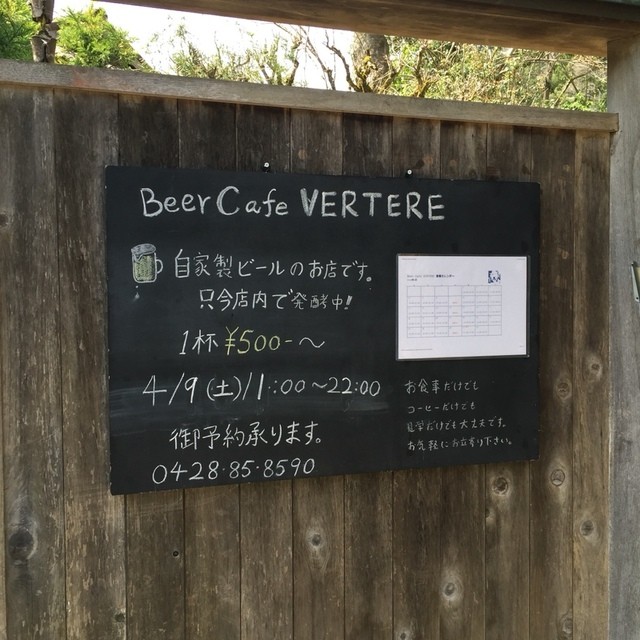 Beer Cafe VERTERE
自家製ビールのお店です。
只今店内で発酵中!
1杯 ¥500-〜
4/9(土)11:00〜22:00
御予約承ります。
0428・85・8590
お食事だけでも
コーヒーだけでも
見学だけでも大丈夫です。
お気軽にお立寄り下さい。